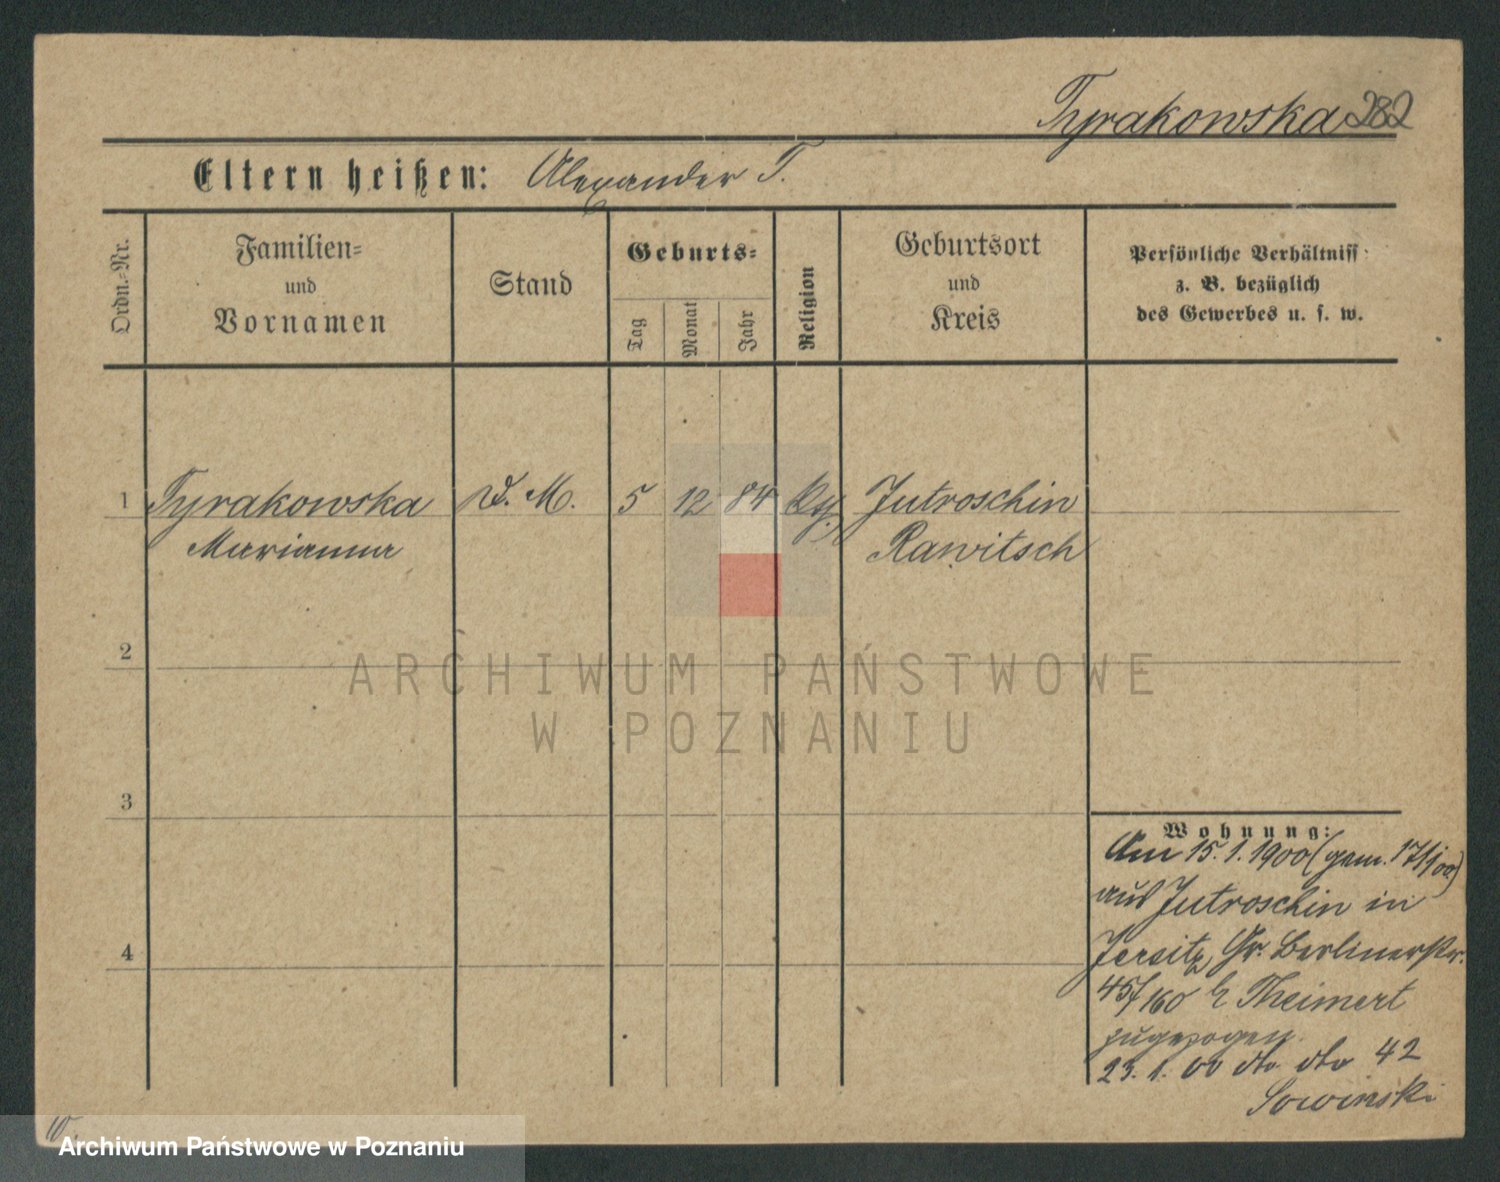 Tyrakowska 282
Eltern heißen: Alexander T.
Ordn.-Nr.
Familien-
und
Vornamen
Stand
Geburts-
Tag
Monat
Jahr
Religion
Geburtsort
und
Kreis
Persönliche Verhältniss
z. B. bezüglich
des Gewerbes u. s. w.
1 Tyrakowska D. M. 5 12 84 Jutroschin
Marianna Rawitsch
2
ARCHIWUM PAŃSTWOWE
W POZNANIU
3
Wohnung:
Am 15.1.1900 (gem. 17/1 00)
aus Jutroschin in
Jersitz, Gr. Berlinerstr.
457/160 Theimert
zugezogen
23.1.00 dto dto 42
Sowinski
4
Archiwum Państwowe w Poznaniu